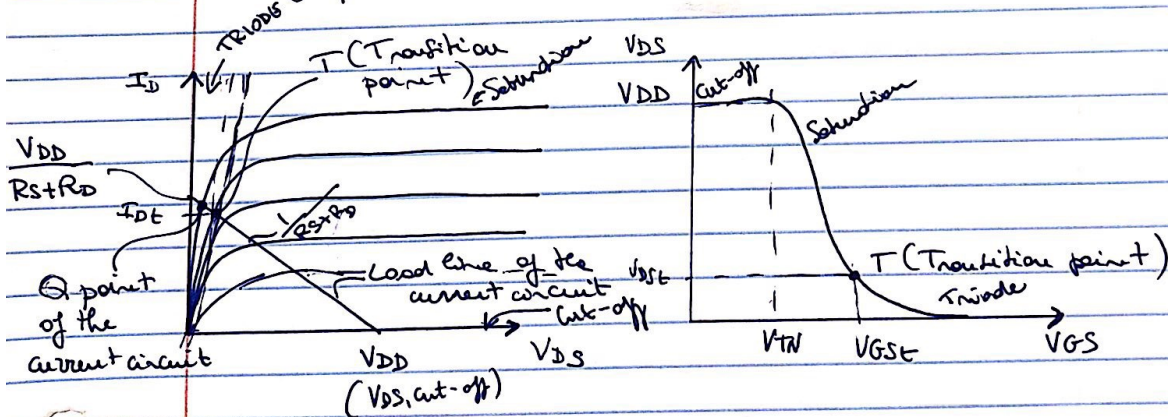 TRIODE
T (Transition
point)
Saturation
ID
VDD
RS+RD
IDt
1/RS+RD
Q point
of the
current circuit
Load line of the
current circuit
Cut-off
VDD
VDS
(VDS, cut-off)
VDS
VDD
Cut-off
Saturation
VDSt
T (Transition point)
Triode
VTN
VGSt
VGS